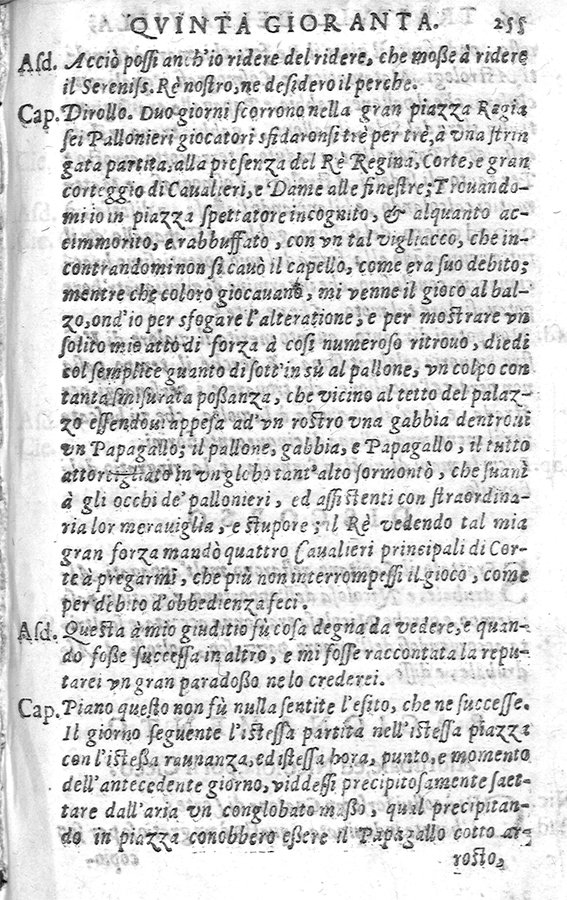 QVINTA GIORANTA. 255
Asd. Acciò possi anch'io ridere del ridere, che moße à ridere
il Sereniss. Rè nostro, ne desidero il perche.
Cap. Dirollo. Duo giorni scorrono nella gran piazza Regia
sei Pallonieri giocatori sfidaronsi trè per trè, à vna strin
gata partita, alla presenza del Rè Regina, Corte, e gran
corteggio di Caualieri, e Dame alle finestre; Trouando-
mi io in piazza spettatore incognito, & alquanto ac-
cimmorito, e rabbuffato, con vn tal vigliacco, che in-
contrandomi non si cauò il capello, come era suo debito;
mentre che coloro giocauano, mi venne il gioco al bal-
zo, ond'io per sfogare l'alteratione, e per mostrare vn
solito mio atto di forza à cosi numeroso ritrouo, diedi
col semplice guanto di sott'in sù al pallone, vn colpo con
tanta smisurata poßanza, che vicino al tetto del palaz-
zo essendoui appesa ad vn rostro vna gabbia dentroui
vn Papagallo; il pallone, gabbia, e Papagallo, il tutto
attortigliato in vn globo tant'alto sormontò, che suanì
à gli occhi de' pallonieri, ed assistenti con straordina-
ria lor merauiglia, e stupore; il Rè vedendo tal mia
gran forza mandò quattro Caualieri principali di Cor-
te à pregarmi, che più non interrompessi il gioco, come
per debito d'obbedienza feci.
Asd. Questa à mio giuditio fù cosa degna da vedere, e quan-
do foße successa in altro, e mi fosse raccontata la repu-
tarei vn gran paradoßo ne lo crederei.
Cap. Piano questo non fù nulla sentite l'esito, che ne successe.
Il giorno seguente l'istessa partita nell'istessa piazza
con l'isteßa raunanza, ed istessa hora, punto, e momento
dell'antecedente giorno, viddessi precipitosamente saet-
tare dall'aria vn conglobato maßo, qual precipitan-
do in piazza conobbero eßere il Papagallo cotto ar-
rosto,